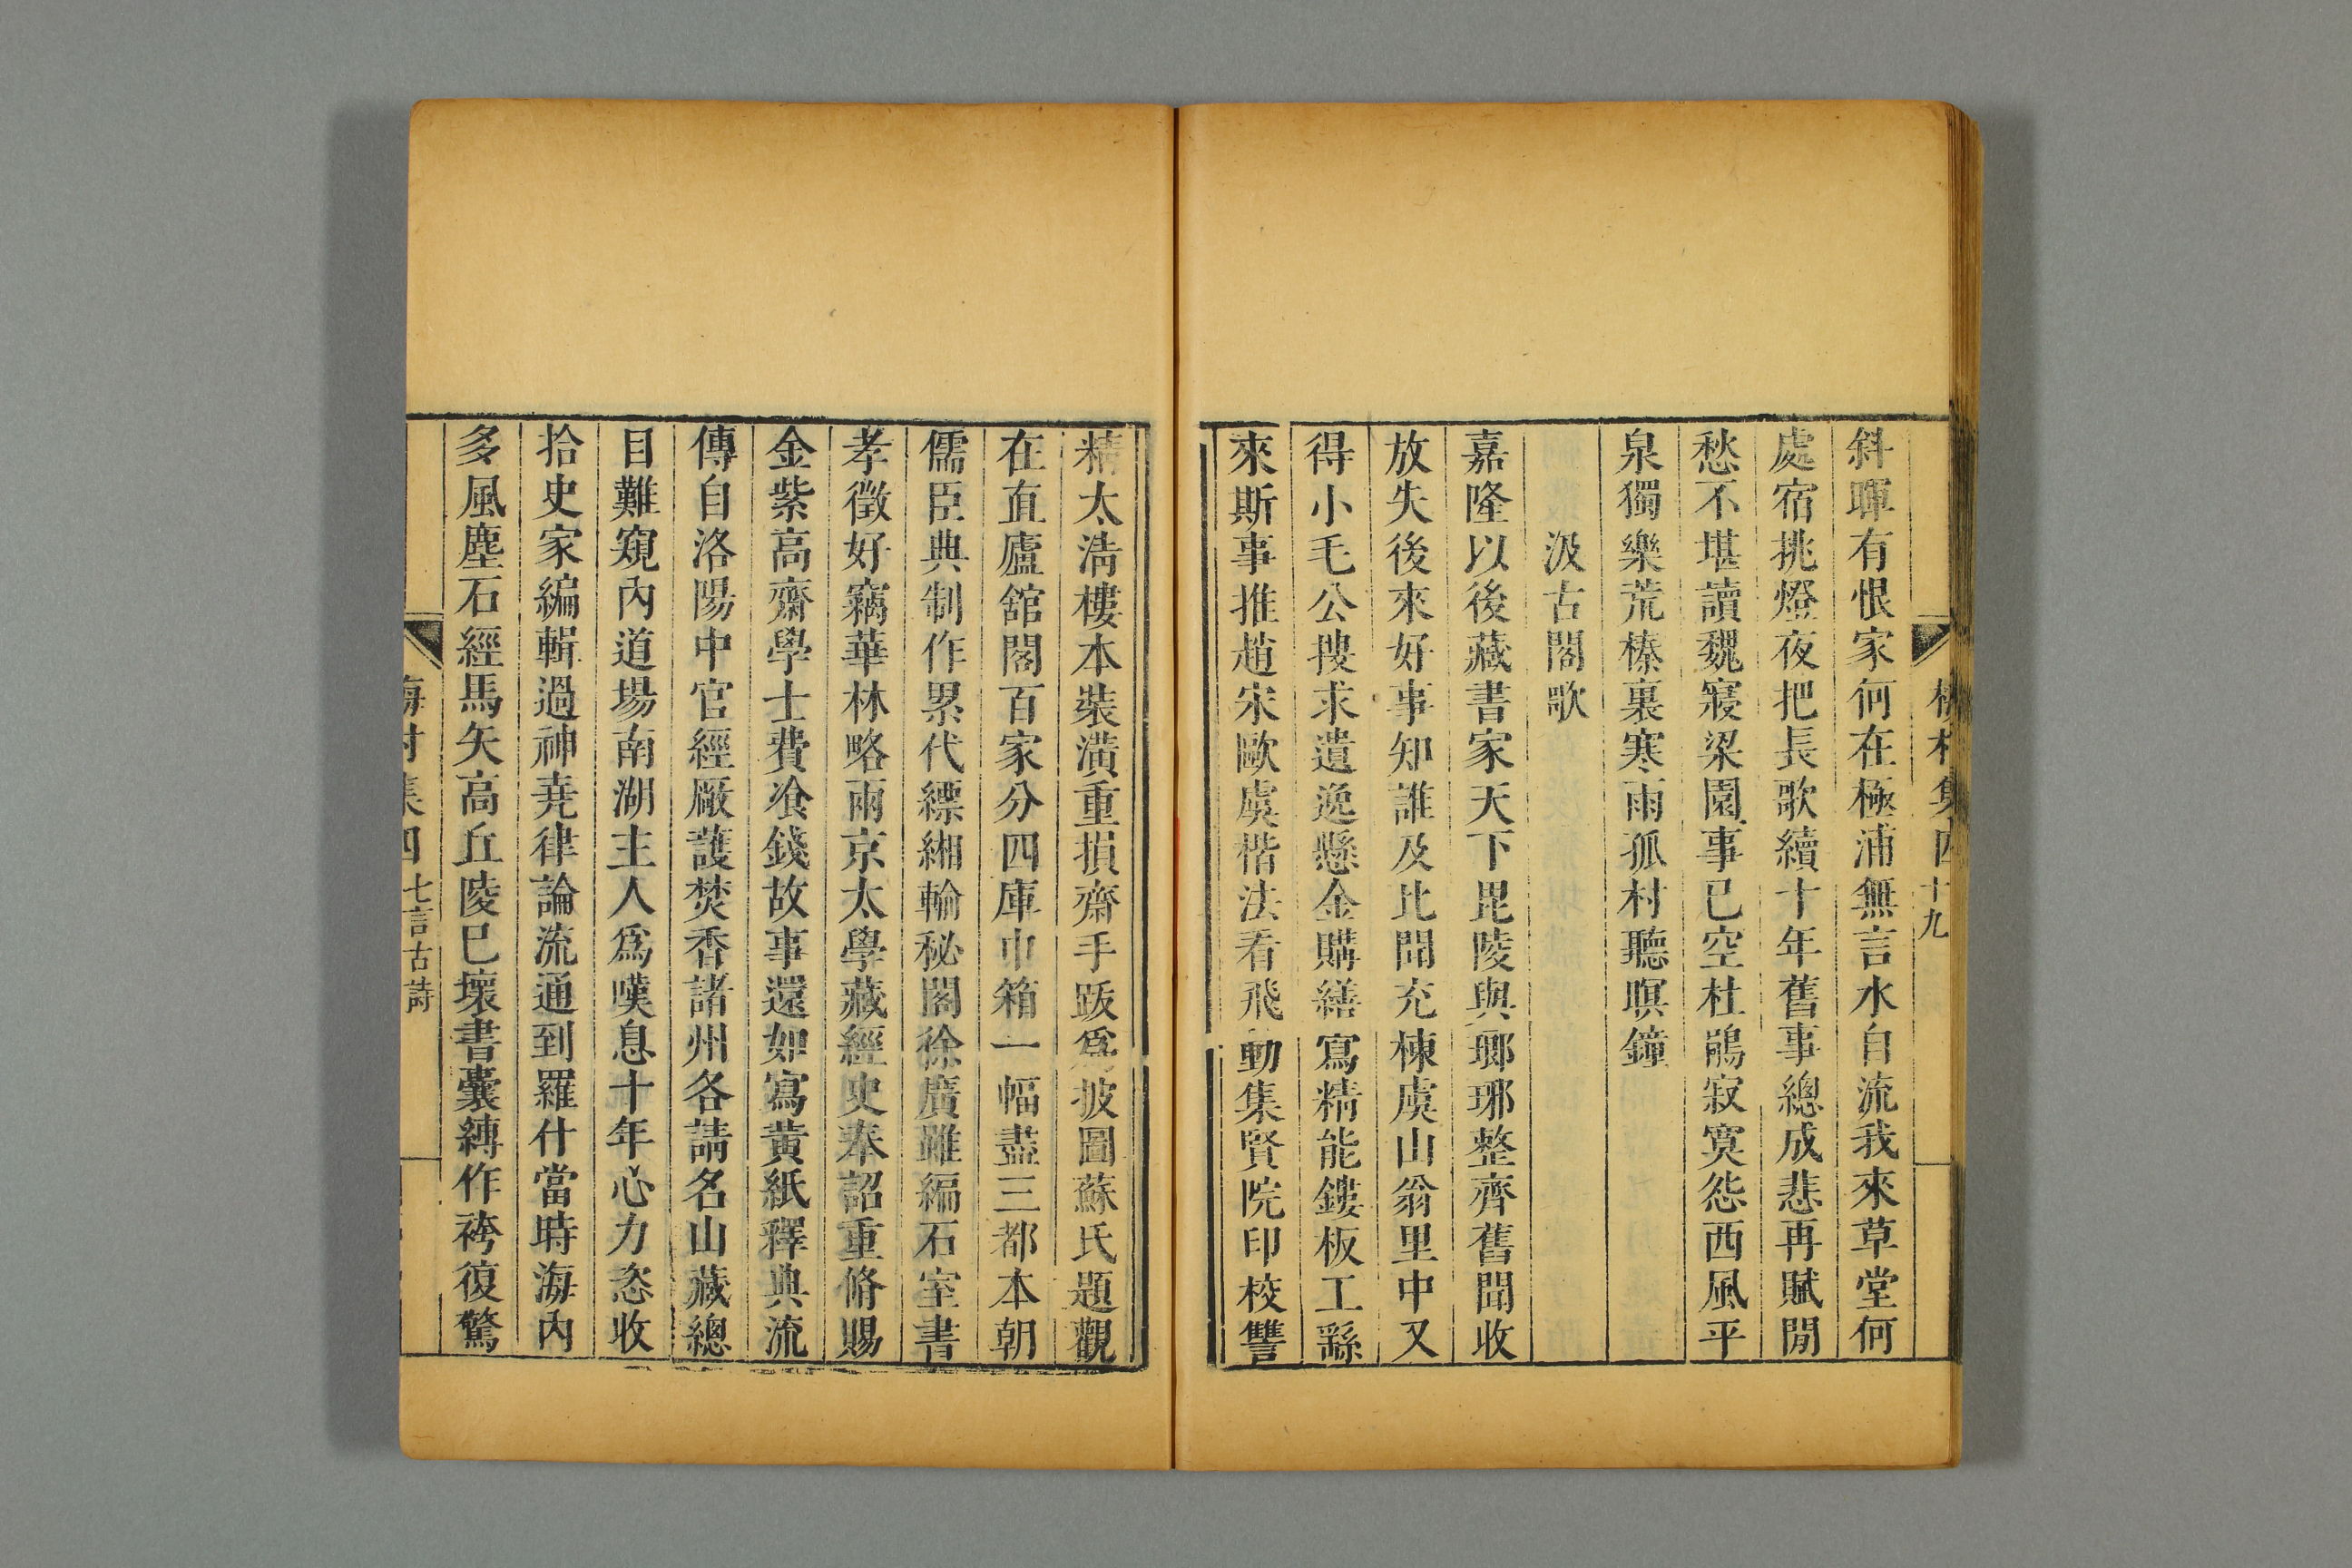 梅村集四 十九
斜暉有恨家何在極浦無言水自流我來草堂何
處宿挑燈夜把長歌續十年舊事總成悲再賦閒
愁不堪讀魏寢梁園事已空杜鵑寂寞怨西風平
泉獨樂荒榛裏寒雨孤村聽暝鐘
汲古閣歌
嘉隆以後藏書家天下毘陵與瑯琊整齊舊聞收
放失後來好事知誰及比聞充棟虞山翁里中又
得小毛公搜求遺逸懸金購繕寫精能鏤板工繇
來斯事推趙宋歐虞楷法看飛動集賢院印校讐
精太淸樓本裝潢重損齋手跋爲披圖蘇氏題觀
在直廬舘閣百家分四庫巾箱一幅盡三都本朝
儒臣典制作累代縹緗輸秘閣徐廣雖編石室書
孝徵好竊華林略兩京太學藏經史奉詔重脩賜
金紫高齋學士費飡錢故事還如寫黃紙釋典流
傳自洛陽中官經厰護焚香諸州各請名山藏總
目難窺內道場南湖主人爲嘆息十年心力恣收
拾史家編輯過神堯律論流通到羅什當時海內
多風塵石經馬矢高丘陵已壞書囊縛作袴復驚
梅村集四 七言古詩